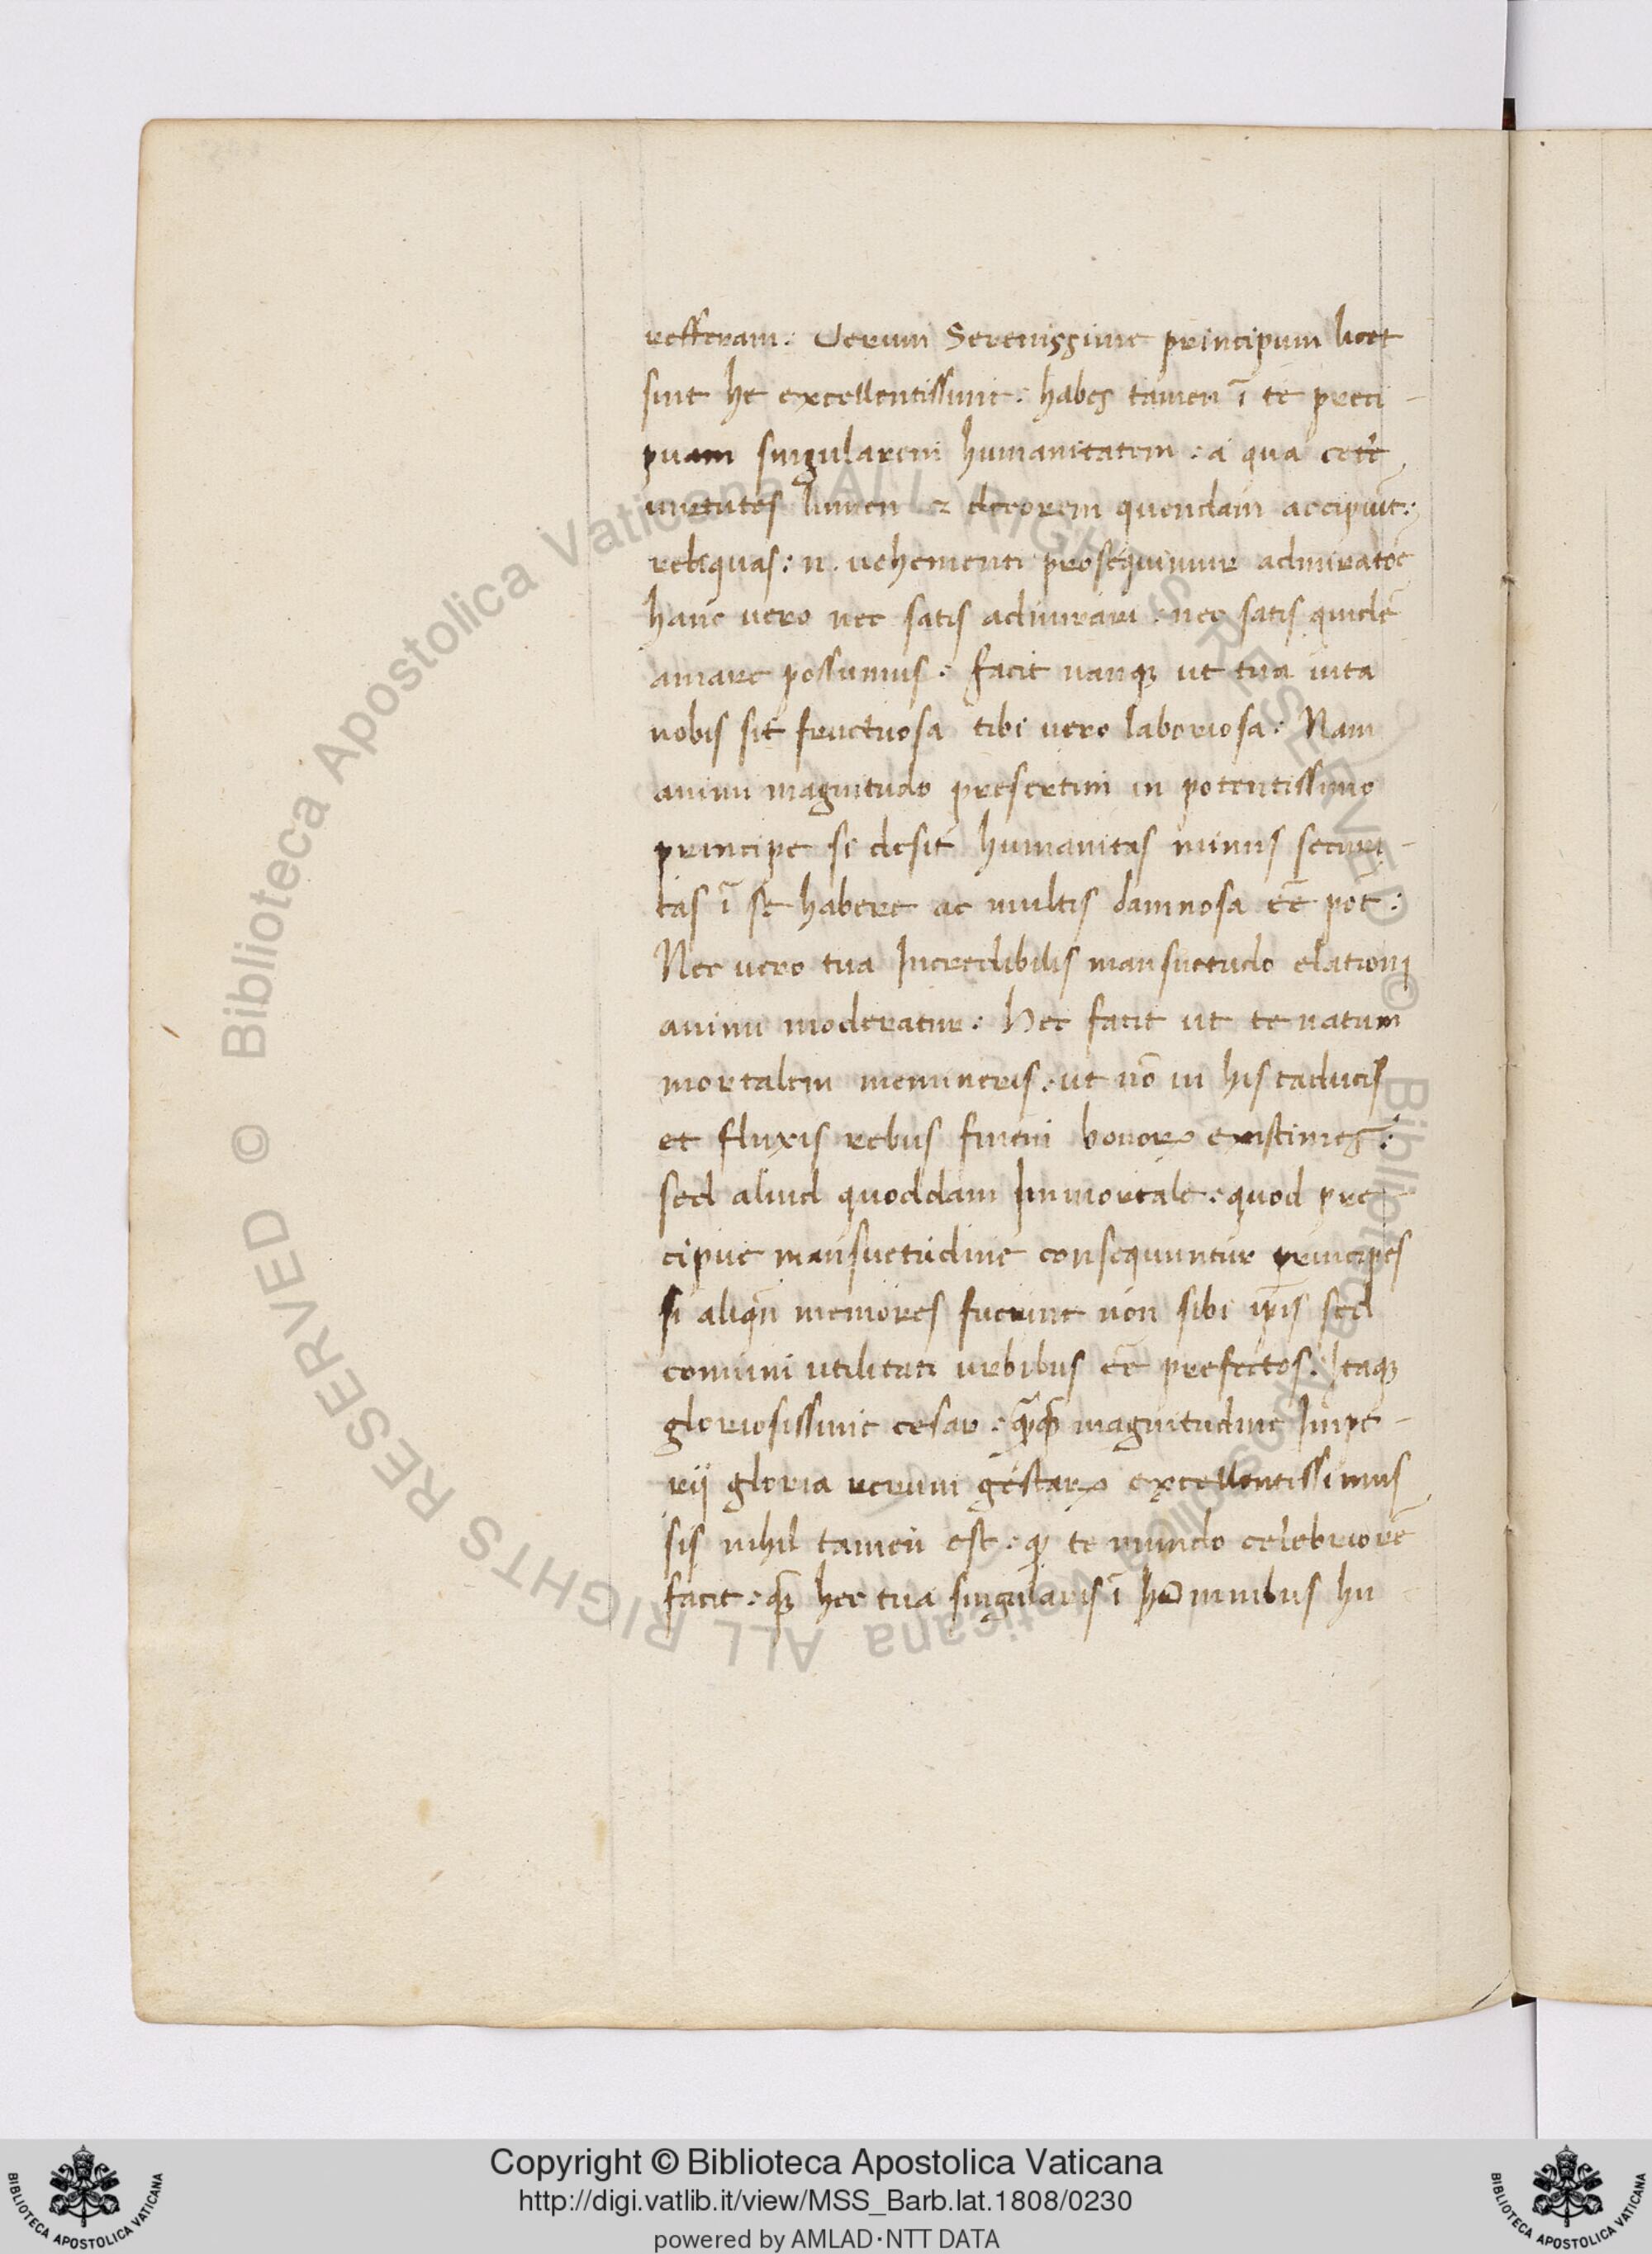 refferam: Uerum Serenissime principum licet
sint he excellentissime: habes tamen ī te preci-
puam singularem humanitatem: a qua cete
uirtutes lumen & decorem quendam accipiūt:
reliquas: n. uehementi prosequimur admiratōe
hanc uero nec satis admirari: nec satis quidē
amare possumus: facit nanq; ut tua uita
nobis sit fructuosa tibi uero laboriosa: Nam
animi magnitudo presertim in potentissimo
principe si desit humanitas minus securi-
tas ī se habere ac multis damnosa eē pot:
Nec uero tua Incredibilis mansuetudo elationi
animi moderatur: Hec facit ut te natum
mortalem memineris: ut nō in his caducis
et fluxis rebus finem bonoꝝ existimes:
sed aliud quoddam Immortale: quod pre-
cipue mansuetudine consequuntur principes
si aliqn̄ memores fuerint non sibi ip̄is sed
comuni utilitati urbibus eē prefectos: Itaq;
gloriosissime cesar: qāqā magnitudine Impe-
rij gloria rerum gestaꝝ excellentissimus
sis nihil tamen est: qꝫ te mundo celebriorē
facit: qꝫ̄ hec tua singularis ī hominibus hu
Copyright © Biblioteca Apostolica Vaticana
http://digi.vatlib.it/view/MSS_Barb.lat.1808/0230
powered by AMLAD·NTT DATA
BIBLIOTECA APOSTOLICA VATICANA
BIBLIOTECA APOSTOLICA VATICANA
© Biblioteca Apostolica Vaticana ALL RIGHTS RESERVED © Biblioteca Apostolica Vaticana ALL RIGHTS RESERVED